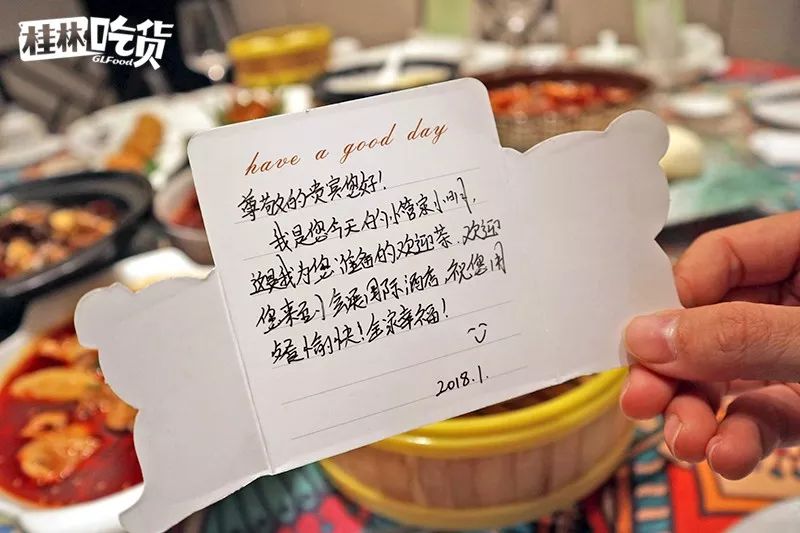 桂林吃货
GLFood
have a good day
尊敬的贵宾您好！
我是您今天的小管家小明，
这是我为您准备的欢迎茶，欢迎
您来到会展国际酒店，祝您用
餐愉快！全家幸福！
2018.1.